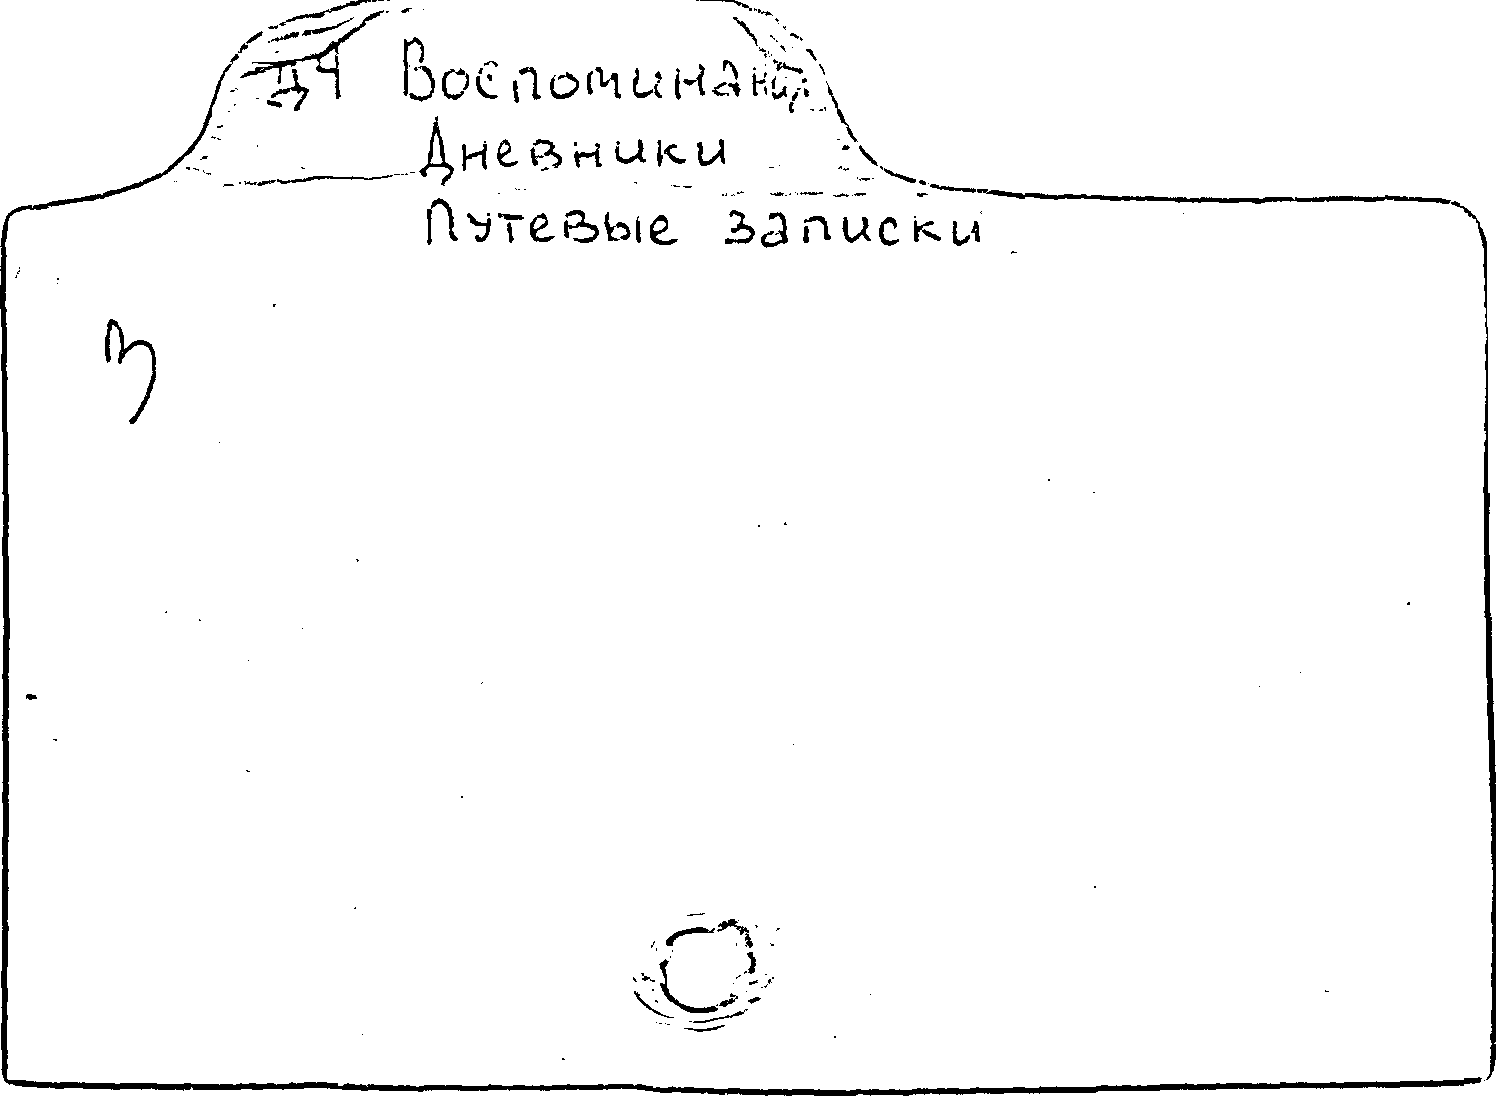 Д4 Воспоминания
Дневники
Путевые записки